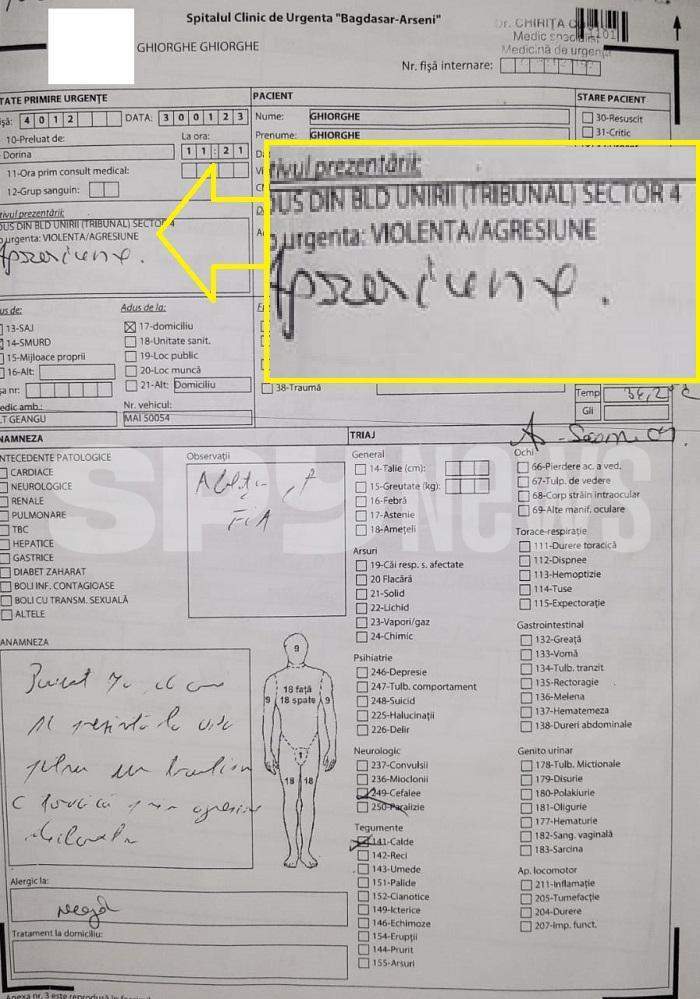 Spitalul Clinic de Urgenta "Bagdasar-Arseni"
Dr. CHIRIȚA
Medic specialist
Medicină de urgență
GHIORGHE GHIORGHE
Nr. fișă internare:
TATE PRIMIRE URGENȚE
PACIENT
STARE PACIENT
4 0 1 2 DATA: 3 0 0 1 2 3
Nume: GHIORGHE
30-Resuscit
10-Preluat de: La ora:
Prenume: GHIORGHE
31-Critic
Dorina 1 1 : 2 1
11-Ora prim consult medical:
12-Grup sanguin:
tivul prezentării:
DUS DIN BLD UNIRII (TRIBUNAL) SECTOR 4
urgenta: VIOLENTA/AGRESIUNE
tivul prezentării:
DUS DIN BLD UNIRII (TRIBUNAL) SECTOR 4
urgenta: VIOLENTA/AGRESIUNE
us de: Adus de la:
13-SAJ
17-domiciliu
14-SMURD
18-Unitate sanit.
15-Mijloace proprii
19-Loc public
16-Alt:
20-Loc muncă
21-Alt: Domiciliu
38-Traumă
Temp
Gli
edic amb.: Nr. vehicul:
T GEANGU MAI 50054
NAMNEZA
TRIAJ
NTECEDENTE PATOLOGICE
CARDIACE
NEUROLOGICE
RENALE
PULMONARE
TBC
HEPATICE
GASTRICE
DIABET ZAHARAT
BOLI INF. CONTAGIOASE
BOLI CU TRANSM. SEXUALĂ
ALTELE
Observații
FiA
SPYNEWS
General
14-Talie (cm):
15-Greutate (kg):
16-Febră
17-Astenie
18-Amețeli
Arsuri
19-Căi resp. s. afectate
20 Flacără
21-Solid
22-Lichid
23-Vapori/gaz
24-Chimic
Psihiatrie
246-Depresie
247-Tulb. comportament
248-Suicid
225-Halucinații
226-Delir
Neurologic
237-Convulsii
236-Mioclonii
249-Cefalee
250-Paralizie
Tegumente
141-Calde
142-Reci
143-Umede
151-Palide
152-Cianotice
149-Icterice
146-Echimoze
154-Erupții
144-Prurit
155-Arsuri
Ochi
66-Pierdere ac. a ved.
67-Tulp. de vedere
68-Corp străin intraocular
69-Alte manif. oculare
Torace-respirație
111-Durere toracică
112-Dispnee
113-Hemoptizie
114-Tuse
115-Expectorație
Gastrointestinal
132-Greață
133-Vomă
134-Tulb. tranzit
135-Rectoragie
136-Melena
137-Hematemeza
138-Dureri abdominale
Genito urinar
178-Tulb. Mictionale
179-Disurie
180-Polakiurie
181-Oligurie
177-Hematurie
182-Sang. vaginală
183-Sarcina
Ap. locomotor
211-Inflamație
205-Tumefacție
204-Durere
207-Imp. funct.
ANAMNEZA
9
18 față
9 18 spate 9
1
18 18
Alergic la:
neagă
Tratament la domiciliu: